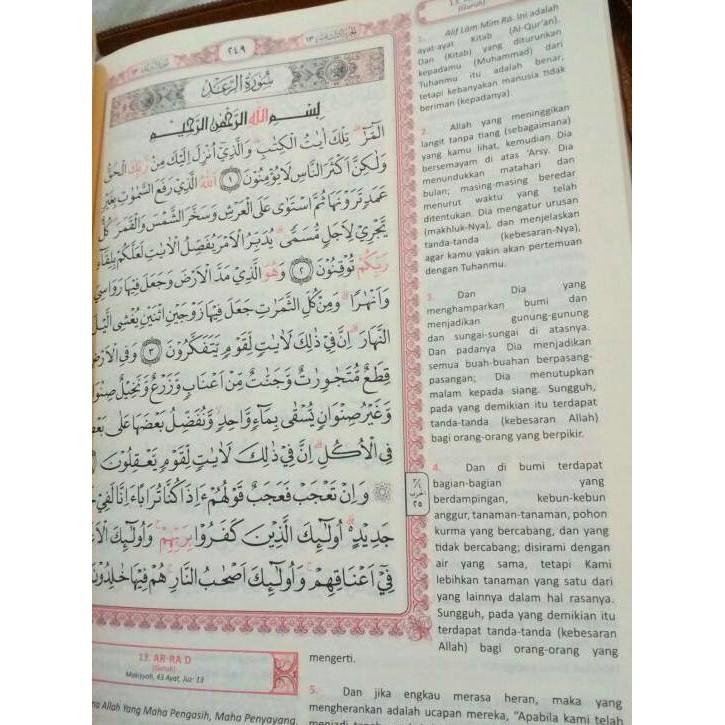 ٢٤٩
سُورَةُ الرَّعْدِ
بِسْمِ اللهِ الرَّحْمٰنِ الرَّحِيْمِ
الٓمّٓرٰ ۗ تِلْكَ اٰيٰتُ الْكِتٰبِ ۗ وَالَّذِيْٓ اُنْزِلَ اِلَيْكَ مِنْ رَّبِّكَ الْحَقُّ
وَلٰكِنَّ اَكْثَرَ النَّاسِ لَا يُؤْمِنُوْنَ ١ اَللهُ الَّذِيْ رَفَعَ السَّمٰوٰتِ بِغَيْرِ
عَمَدٍ تَرَوْنَهَا ثُمَّ اسْتَوٰى عَلَى الْعَرْشِ وَسَخَّرَ الشَّمْسَ وَالْقَمَرَ ۗ كُلٌّ
يَّجْرِيْ لِاَجَلٍ مُّسَمًّى ۗ يُدَبِّرُ الْاَمْرَ يُفَصِّلُ الْاٰيٰتِ لَعَلَّكُمْ بِلِقَاۤءِ
رَبِّكُمْ تُوْقِنُوْنَ ٢ وَهُوَ الَّذِيْ مَدَّ الْاَرْضَ وَجَعَلَ فِيْهَا رَوَاسِيَ
وَاَنْهٰرًا ۗ وَمِنْ كُلِّ الثَّمَرٰتِ جَعَلَ فِيْهَا زَوْجَيْنِ اثْنَيْنِ يُغْشِى الَّيْلَ
النَّهَارَ ۗ اِنَّ فِيْ ذٰلِكَ لَاٰيٰتٍ لِّقَوْمٍ يَّتَفَكَّرُوْنَ ٣ وَفِى الْاَرْضِ
قِطَعٌ مُّتَجٰوِرٰتٌ وَّجَنّٰتٌ مِّنْ اَعْنَابٍ وَّزَرْعٌ وَّنَخِيْلٌ صِنْوَا
وَّغَيْرُ صِنْوَانٍ يُّسْقٰى بِمَاۤءٍ وَّاحِدٍ ۙ وَّنُفَضِّلُ بَعْضَهَا عَلٰى بَعْضٍ
فِى الْاُكُلِ ۗ اِنَّ فِيْ ذٰلِكَ لَاٰيٰتٍ لِّقَوْمٍ يَّعْقِلُوْنَ
وَاِنْ تَعْجَبْ فَعَجَبٌ قَوْلُهُمْ ءَاِذَا كُنَّا تُرَابًا ءَاِنَّا لَفِيْ
جَدِيْدٍ ۗ اُولٰۤىِٕكَ الَّذِيْنَ كَفَرُوْا بِرَبِّهِمْ ۚ وَاُولٰۤىِٕكَ
فِيْٓ اَعْنَاقِهِمْ ۚ وَاُولٰۤىِٕكَ اَصْحٰبُ النَّارِ ۚ هُمْ فِيْهَا خٰلِدُوْنَ
٢٥
13. AR-RA D
(Guruh)
Makiyyah, 43 Ayat, Juz: 13
Allah Yang Maha Pengasih, Maha Penyayang.
(Guruh)
1. Alif Lam Mim Ra. Ini adalah
ayat-ayat Kitab (Al-Qur'an).
Dan (Kitab) yang diturunkan
kepadamu (Muhammad) dari
Tuhanmu itu adalah benar;
tetapi kebanyakan manusia tidak
beriman (kepadanya).
2. Allah yang meninggikan
langit tanpa tiang (sebagaimana)
yang kamu lihat, kemudian Dia
bersemayam di atas 'Arsy. Dia
menundukkan matahari dan
bulan; masing-masing beredar
menurut waktu yang telah
ditentukan. Dia mengatur urusan
(makhluk-Nya), dan menjelaskan
tanda-tanda (kebesaran-Nya),
agar kamu yakin akan pertemuan
dengan Tuhanmu.
3. Dan Dia yang
menghamparkan bumi dan
menjadikan gunung-gunung
dan sungai-sungai di atasnya.
Dan padanya Dia menjadikan
semua buah-buahan berpasang-
pasangan; Dia menutupkan
malam kepada siang. Sungguh,
pada yang demikian itu terdapat
tanda-tanda (kebesaran Allah)
bagi orang-orang yang berpikir.
4. Dan di bumi terdapat
bagian-bagian yang
berdampingan, kebun-kebun
anggur, tanaman-tanaman, pohon
kurma yang bercabang, dan yang
tidak bercabang; disirami dengan
air yang sama, tetapi Kami
lebihkan tanaman yang satu dari
yang lainnya dalam hal rasanya.
Sungguh, pada yang demikian itu
terdapat tanda-tanda (kebesaran
Allah) bagi orang-orang yang
mengerti.
5. Dan jika engkau merasa heran, maka yang
mengherankan adalah ucapan mereka, "Apabila kami telah